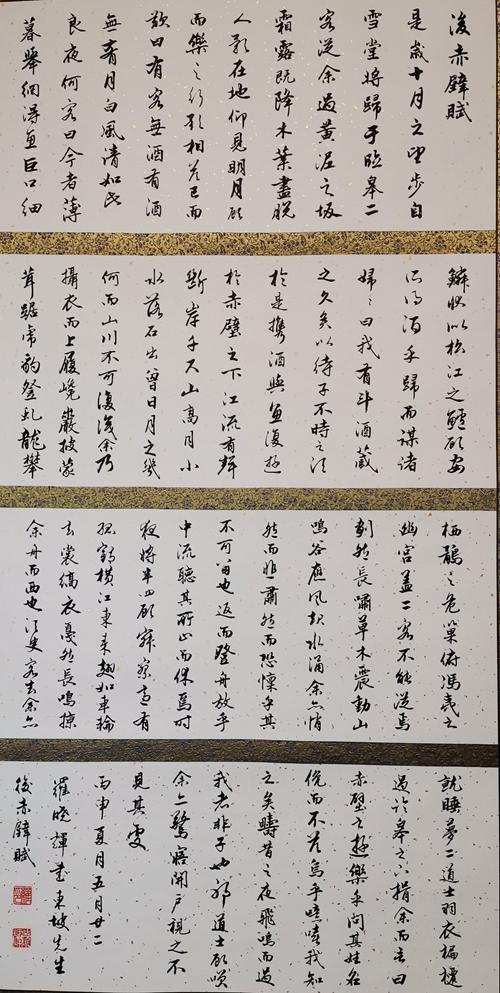 後赤壁賦
是歲十月之望步自
雪堂將歸于臨皋二
客從余過黃泥之坂
霜露既降木葉盡脫
人影在地仰見明月顧
而樂之行歌相答已而
歎曰有客無酒有酒
無肴月白風清如此
良夜何客曰今者薄
暮舉網得魚巨口細
鱗狀似松江之鱸顧安
所得酒乎歸而謀諸
婦婦曰我有斗酒藏
之久矣以待子不時之須
於是攜酒與魚復遊
於赤壁之下江流有聲
斷岸千尺山高月小
水落石出曾日月之幾
何而山川不可復識余乃
攝衣而上履巉巖披蒙
茸踞虎豹登虬龍攀
栖鶻之危巢俯馮夷之
幽宮蓋二客不能從焉
劃然長嘯草木震動山
鳴谷應風起水涌余亦悄
然而悲肅然而恐懍乎其
不可留也返而登舟放乎
中流聽其所止而休焉時
夜將半四顧寂寥適有
孤鶴橫江東來翅如車輪
玄裳縞衣戛然長鳴掠
余舟而西也須臾客去余亦
就睡夢二道士羽衣蹁躚
過臨皋之下揖余而言曰
赤壁之遊樂乎問其姓名
俛而不答嗚乎噫嘻我知
之矣疇昔之夜飛鳴而過
我者非子也耶道士顧笑
余亦驚寤開戶視之不
見其處
丙申夏月五月廿二
羅曉輝書東坡先生
後赤壁賦